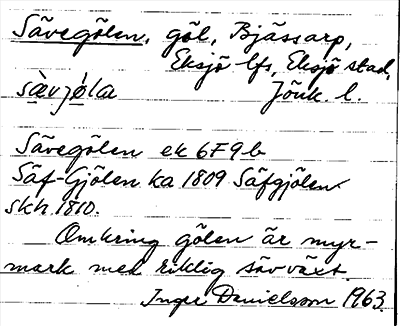 Sävegölen, göl, Bjässarp,
Eksjö lfs, Eksjö stad,
sæ̀vjṍla Jönk. l.
Sävegölen ek 6F9b
Säf-Gjölen ka 1809 Säfgjölen
skh 1810.
Omkring gölen är myr-
mark med riklig sävväxt.
Inger Danielsson 1963.